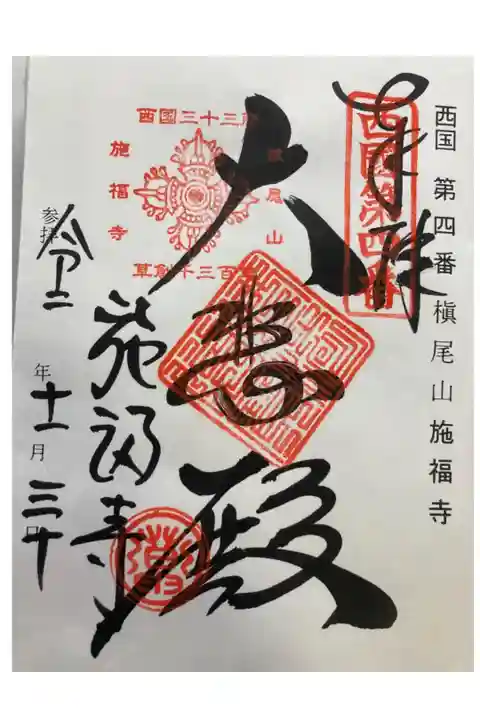 西国 第四番 槇尾山施福寺
奉拝
西國第四番
大悲殿
西国三十三所
槇尾山
施福寺
草創千三百年
施福寺
参拝 令二年十一月三十日